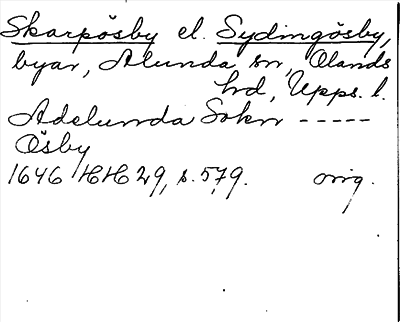 Skarpösby el. Sydingösby,
byar, Alunda sn, Olands
hd, Upps. l.
Adelunda Sokn -----
Ösby
1646 HH 29, s. 579. orig.